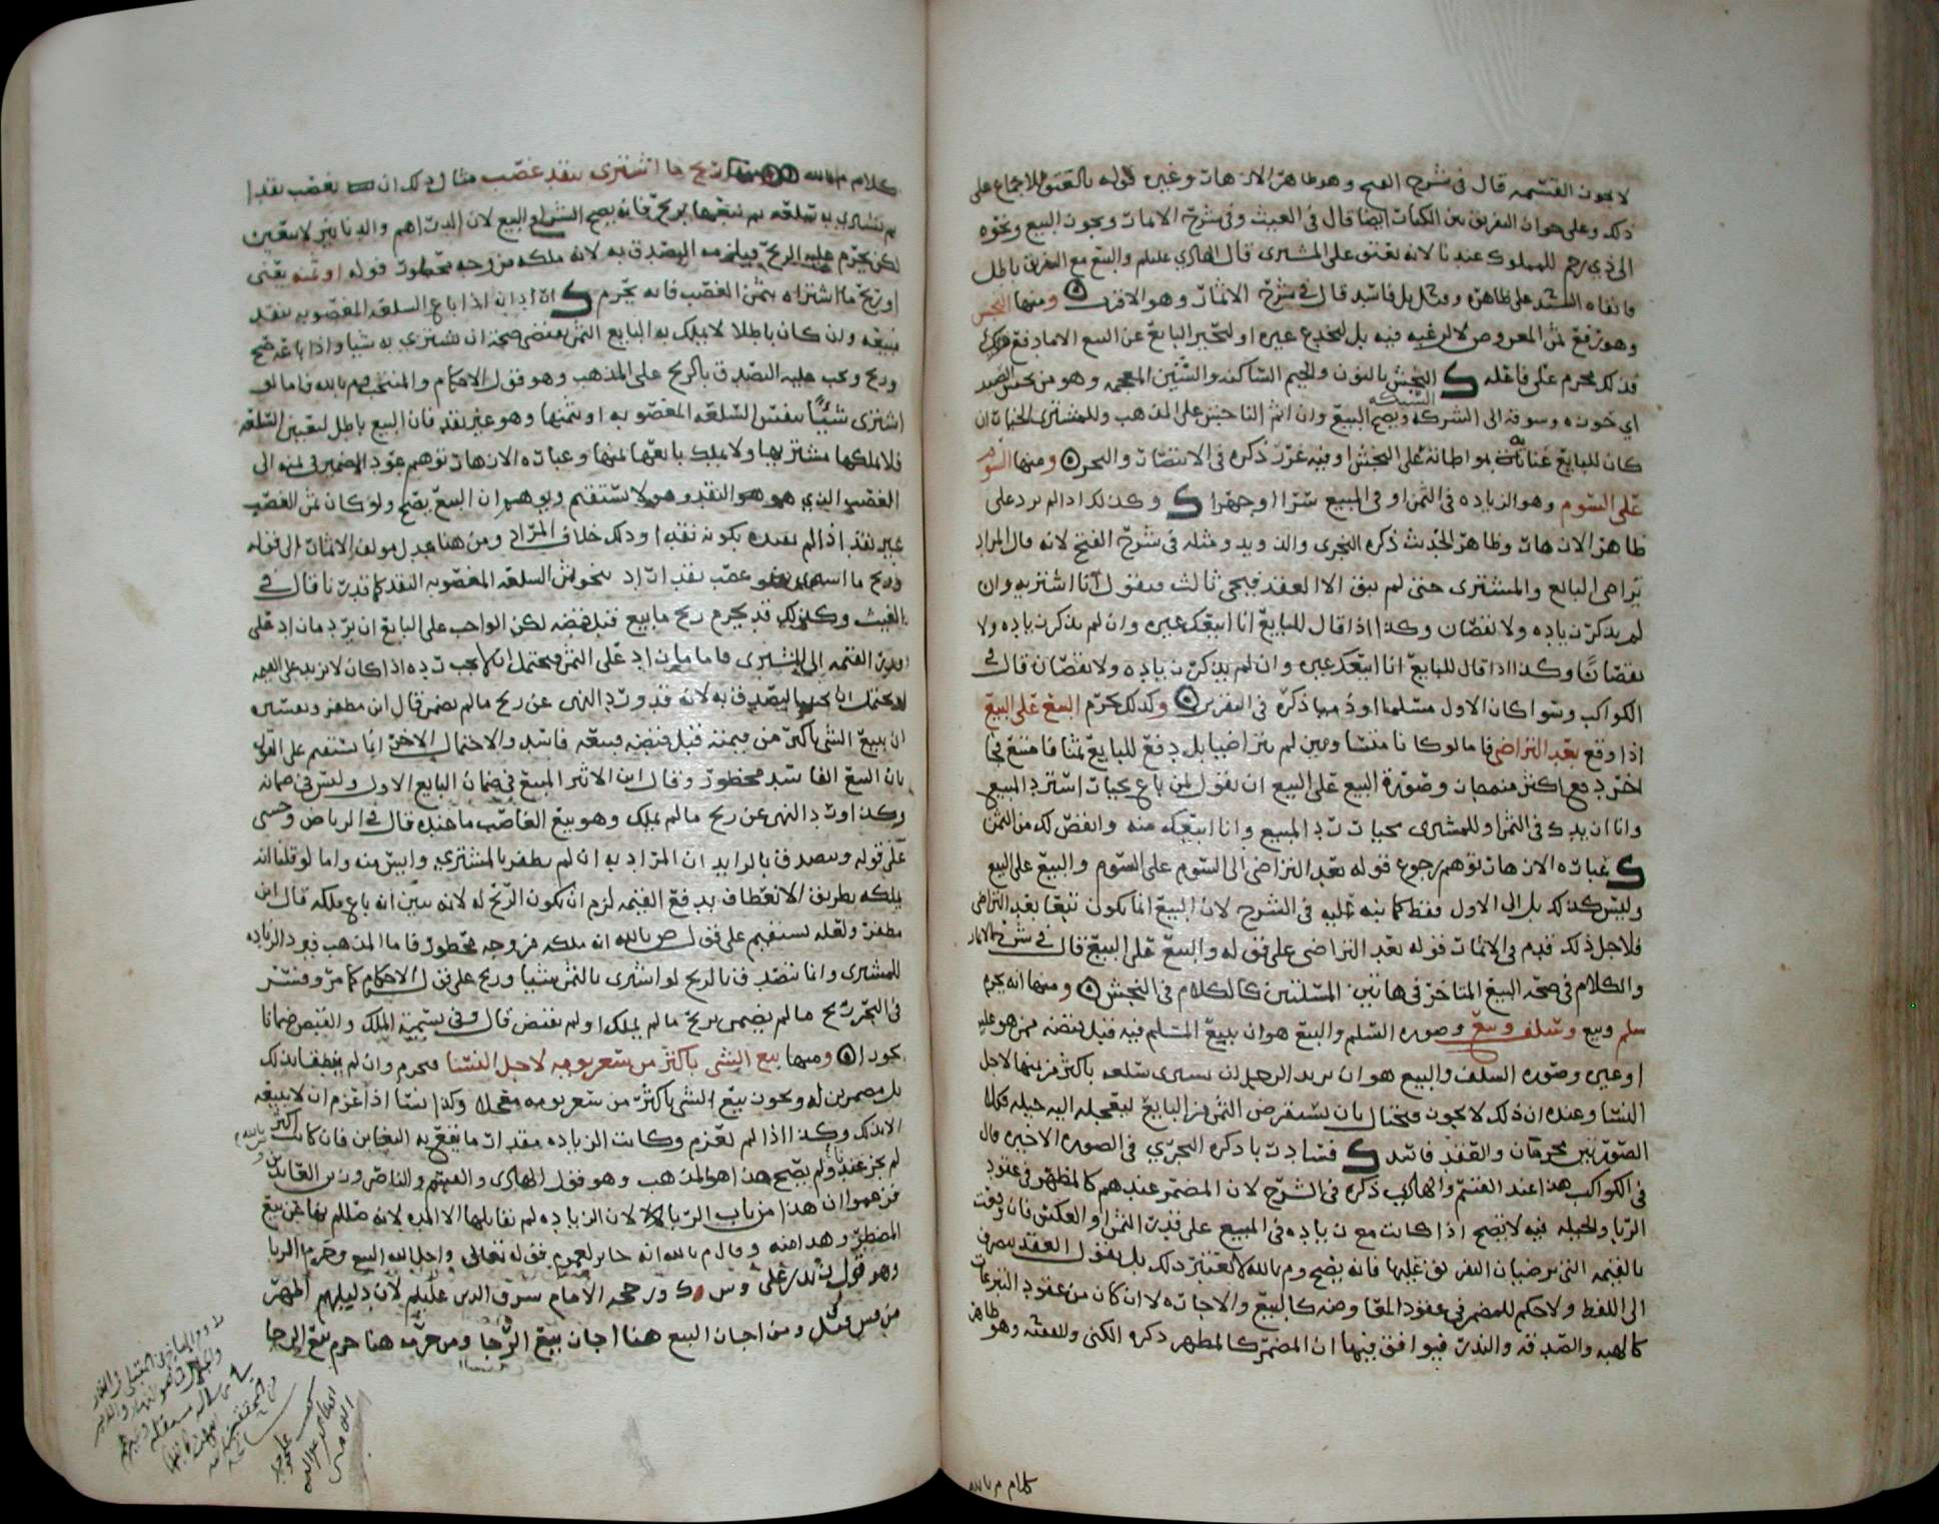 لا يجوز القسمه قال في شرح الفتح وهو ظاهر الازهار وغيره قوله بالعتق للاجماع على
ذلك وعلى جواز التفريق بين الكبار ايضا قال في الغيث وفي شرح الاثمار ويجوز البيع ونحوه
الى ذي رحم للمملوك عندنا لانه يعتق على المشتري قال الهادي عليلم والبيع مع التفريق باطل
فابقاه على ظاهره وقيل بل فاسد قال في شرح الاثمار وهو الاقرب ومنها النجش
وهو رفع ثمن المعروض لا لرغبه فيه بل ليخدع غيره او لتخير البايع عن البيع الا بما دفع
فذلك محرم على فاعله ك النجش بالنون والجيم الساكنه والشين المعجمه وهو من نجش الصيد
اي حوزه وسوقه الى الشركه ويصح البيع وان اثم الناجش على المذهب وللمشتري الخيار ان
كان للبايع عنايه بمواطاته على النجش او فيه غرر ذكره في الانتصار والبحر ومنها السوم
على السوم وهو الزياده في الثمن او في المبيع سرا او جهرا ك وكذلك اذا لم يزد على
ظاهر الازهار وظاهر الحديث ذكره النجري والدويد ومثله في شرح الفتح لانه قال المراد
تراضى البايع والمشتري حتى لم يبق الا العقد فيجي ثالث فيقول انا اشتريه وان
لم يذكر زياده ولا نقصان وكذا اذا قال للبايع انا ابيعك غيره وان لم يذكر زياده ولا
نقصانا وكذا اذا قال للبايع انا ابيعك غيره وان لم يذكر زياده ولا نقصان قال في
الكواكب وسوا كان الاول مسلما او ذميا ذكره في التقرير وكذلك يحرم البيع على البيع
اذا وقع بعد التراضي فاما لو كانا متسا ومين لم يتراضيا بل دفع للبايع ثمنا فامتنع فجا
اخر دفع اكثر منه جاز وصورة البيع على البيع ان يقول لمن باع بخيار استرد المبيع
وانا ازيدك في الثمن او للمشتري بخيار رد المبيع وانا ابيعكه منه وانقص لك من الثمن
ك عبارة الازهار توهم رجوع قوله بعد التراضي الى السوم على السوم والبيع على البيع
وليس كذلك بل الى الاول فقط كما نبه عليه في الشرح لان البيع انما يكون بيعا بعد التراضي
فلاجل ذلك قدم في الاثمار قوله بعد التراضي على قوله والبيع على البيع قال في شرح الاثمار
والكلام في صحه البيع المتاخر في هاتين المسئلتين كالكلام في النجش ومنها انه يحرم
سلم وبيع وسلف وبيع وصوره السلم والبيع هو ان يبيع المسلم فيه قبل قبضه ممن هو عليه
او غيره وصوره السلف والبيع هو ان يريد الرجل ان يشتري سلعه باكثر من ثمنها لاجل
النسا وعنده ان ذلك لا يجوز فيحتال بان يستقرض الثمن من البايع ليعجله اليه حيله فكلا
الصورتين محرمتان والعقد فاسد ك فتنازبا ذكره النجري في الصوره الاخيره قال
في الكواكب هذا عند القسم والهادي ذكره في الشرح لان المضمر عندهم كالمظهر في عقود
الربا والحيله فيه لا تصح اذا كانت مع زياده في المبيع على قدر الثمن او العكس فان وقعت
بالقيمه التي يرضيان التفرق عليها فانه يصح وم بالله لا يعتبر ذلك بل يقول العقد ينصرف
الى اللفظ ولا حكم للمضمر في عقود المعاوضه كالبيع والاجاره لا ان كان من عقود التبرعات
كالهبه والصدقه والنذر فيوافق فيها ان المضمر كالمظهر ذكره الكني وللفقيه وهو ظاهر
كلام م بالله
كلام م بالله ومنها ربح ما اشترى بنقد غصب مثال ذلك ان يغصب نقدا
ثم يشتري به سلعه ثم يبيعها بربح فانه يصح الشرا والبيع لان الدراهم والدنانير لا تتعين
لكن يحرم عليه الربح ويلزمه التصدق به لانه ملكه من وجه محظور قوله او ثمنه يعني
او ربح ما اشتراه بثمن الغصب فانه يحرم ك اراد ان اذا باع السلعه المغصوبه بنقد
فبيعه وان كان باطلا لا يملك به البايع الثمن يقتضي صحة ان يشتري به شيا واذا باعه صح
وربح ويجب عليه التصدق بالربح على المذهب وهو قول الاحكام والمنتخب وم بالله فاما لو
اشترى شيئا بنفس السلعه المغصوبه او بثمنها وهو غير نقد فان البيع باطل لتعين السلعه
فلا يملكها مشتريها ولا يملك بايعها ثمنها وعبارة الازهار توهم عود الضمير في ثمنه الى
الغصب الذي هو النقد وهو لا يستقيم ويوهم ان البيع يصح ولو كان ثمن الغصب
غير نقد اذا لم يقيده بكونه نقدا وذلك خلاف المراد ومن هنا عدل مولف الاثمار الى قوله
وربح ما اشتري بنحو غصب نقد اراد بنحو ثمن السلعه المغصوبه النقد كما قدرنا قال في
الغيث وكذلك قد يحرم ربح ما بيع قبل قبضه لكن الواجب على البايع ان يرد ما زاد على
قدر القيمه الى المشتري فاما ما زاد على الثمن فيحتمل ان لا يجب رده اذا كان لا يزيد على القيمه
ويحتمل انه يجب التصدق به لانه قد ورد النهي عن ربح ما لم يضمن قال ابن مظفر وتفسيره
ان يبيع الشي باكثر من قيمته قبل قبضه فبيعه فاسد والاحتمال الاخر انما يستقيم على القول
بان البيع الفاسد محظور وقال ابن الاثير المبيع في ضمان البايع الاول وليس في ضمانه
وكذا ورد النهي عن ربح ما لم يملك وهو بيع الغاصب ما عنده قال في الرياض وحسي
على قوله ويتصدق بالزايد ان المراد به ان لم يظفر بالمشتري وايس منه واما لو قلنا انه
يملكه بطريق الانعطاف بدفع القيمه لزم ان يكون الربح له لانه تبين انه باع ملكه قال ابن
مظفر ولعله يستقيم على قول ص بالله انه ملكه من وجه محظور فاما المذهب فيرد الزياده
للمشتري وانما يتصدق بالربح لو اشترى بالثمن شيا وربح على قول الاحكام كما مر وفسر
في البحر ربح ما لم يضمن بربح ما لم يملك او لم يقبض قال وفي تسمية الملك والقبض ضمانا
تجوزا ومنها بيع الشي باكثر من سعر يومه لاجل النسا فيحرم وان لم ينطقا بذلك
بل مضمرين له ويجوز بيع الشي باكثر من سعر يومه معجلا وكذا نسا اذا عزم ان لا يبيعه
الا بذلك وكذا اذا لم يعزم وكانت الزياده مقدار ما يقع به التغابن فان كانت اكثر
لم يجز عندنا ولم يصح هذا هو المذهب وهو قول الهادي والقسم والناصر وزين العابدين
فزعموا ان هذا من باب الربا لان الزياده لم تقابلها الا المده لانه ظلم يضاهي بيع
المضطر وهذا منه وقال م بالله انه جايز لعموم قوله تعالى واحل الله البيع وحرم الربا
وهو قول زيد بن علي وس وك ورجحه الامام شرف الدين عليلم لان دليلهم اظهر
من س قيل ومن اجاز البيع هنا اجاز بيع الرجا ومن حرمه هنا حرم بيع الرجا